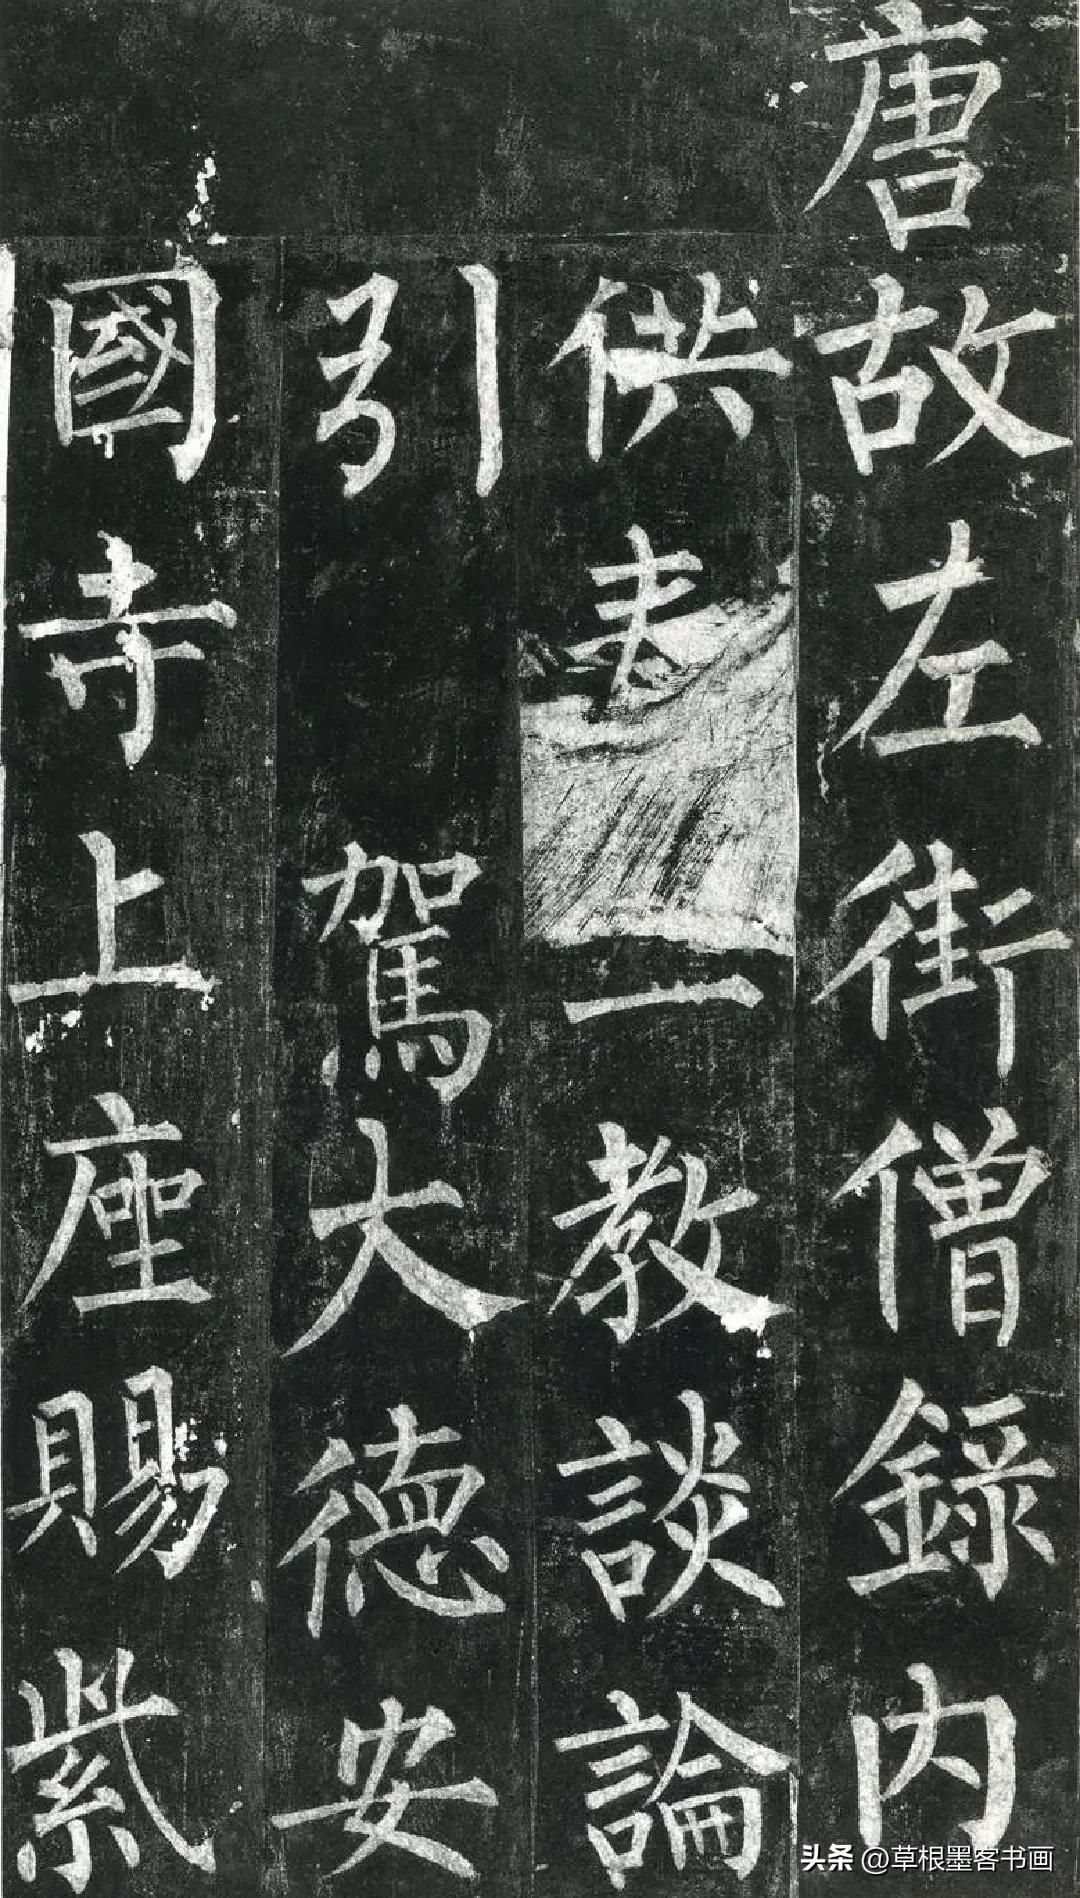 唐故左街僧錄内
供教談論
引駕大德安
國寺上座賜紫
头条 @草根墨客书画